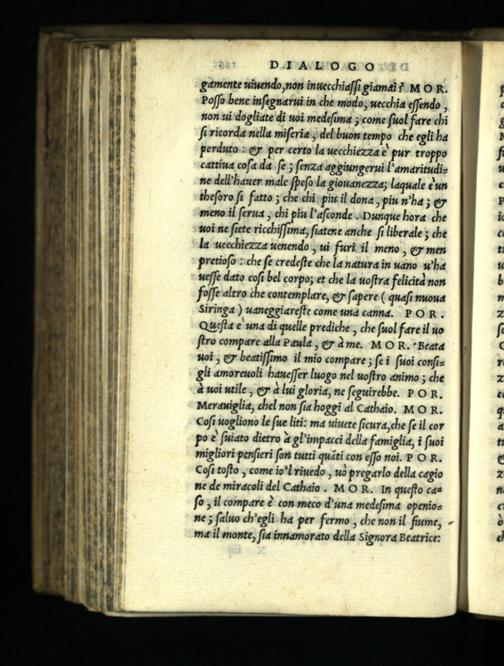 DIALOGO
gamente uiuendo, non inuecchiassi giamai? MOR.
Posso bene insegnarui in che modo, uecchia essendo,
non ui dogliate di uoi medesima; come suol fare chi
si ricorda nella miseria, del buon tempo che egli ha
perduto: & per certo la uecchiezza è pur troppo
cattiua cosa da se; senza aggiungerui l'amaritudi=
ne dell'hauer male speso la giouanezza; laquale è un
thesoro si fatto; che chi piu il dona, piu n'ha; &
meno il serua, chi piu l'asconde. Dunque hora che
uoi ne siete ricchissima, siatene anche si liberale; che
la uecchiezza uenendo, ui furi il meno, & men
pretioso: che se credeste che la natura in uano u'ha
uesse dato cosi bel corpo; et che la uostra felicità non
fosse altro che contemplare, & sapere (quasi nuoua
Siringa) uaneggiareste come una canna. POR.
Questa è una di quelle prediche, che suol fare il uo
stro compare alla Paula, & à me. MOR. Beata
uoi, & beatissimo il mio compare; se i suoi consi=
gli amoreuoli hauesser luogo nel uostro animo; che
à uoi utile, & à lui gloria, ne seguirebbe. POR.
Merauiglia, chel non sia hoggi al Cathaio. MOR.
Cosi uogliono le sue liti: ma uiuete sicura, che se il cor
po è suiato dietro à gl'impacci della famiglia, i suoi
migliori pensieri son tutti quãti con esso noi. POR.
Cosi tosto, come io'l riuedo, uò pregarlo della cagio
ne de miracoli del Cathaio. MOR. In questo ca=
so, il compare è con meco d'una medesima openio=
ne; saluo ch'egli ha per fermo, che non il fiume,
ma il monte, sia innamorato della Signora Beatrice: